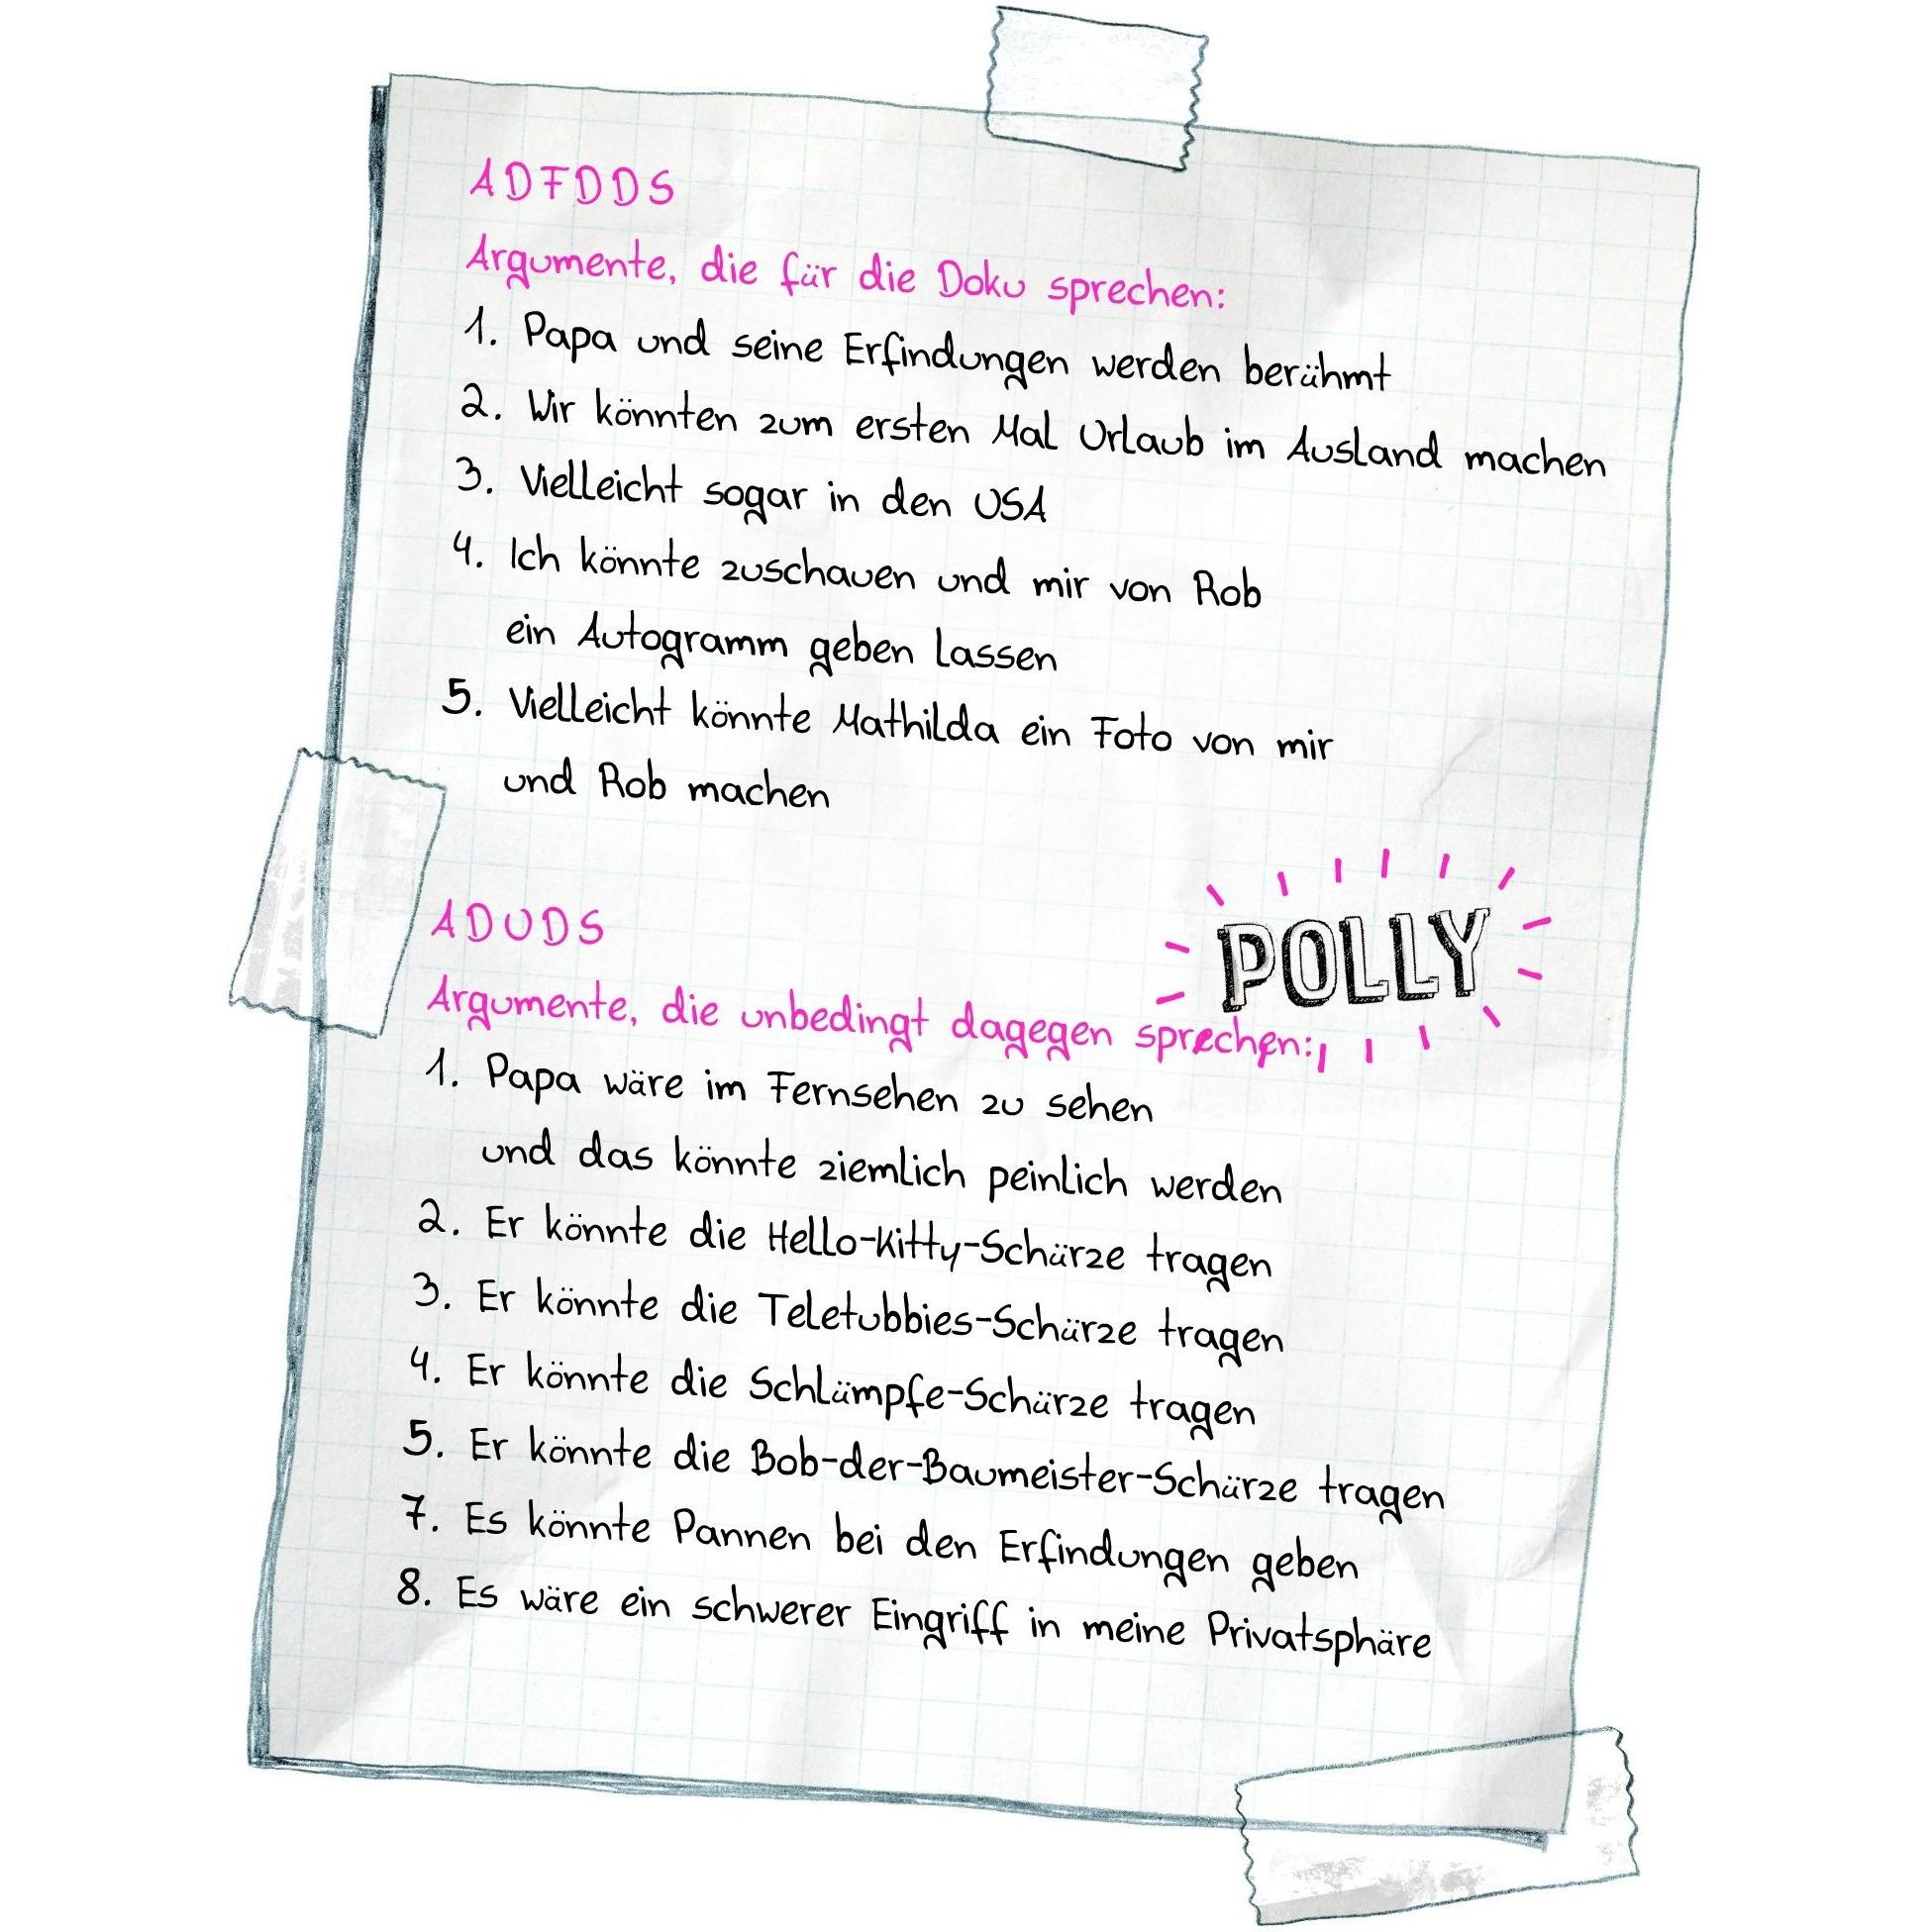 ADFDDS
Argumente, die für die Doku sprechen:
1. Papa und seine Erfindungen werden berühmt
2. Wir könnten zum ersten Mal Urlaub im Ausland machen
3. Vielleicht sogar in den USA
4. Ich könnte zuschauen und mir von Rob
ein Autogramm geben lassen
5. Vielleicht könnte Mathilda ein Foto von mir
und Rob machen
POLLY
ADUDS
Argumente, die unbedingt dagegen sprechen:
1. Papa wäre im Fernsehen zu sehen
und das könnte ziemlich peinlich werden
2. Er könnte die Hello-Kitty-Schürze tragen
3. Er könnte die Teletubbies-Schürze tragen
4. Er könnte die Schlümpfe-Schürze tragen
5. Er könnte die Bob-der-Baumeister-Schürze tragen
7. Es könnte Pannen bei den Erfindungen geben
8. Es wäre ein schwerer Eingriff in meine Privatsphäre